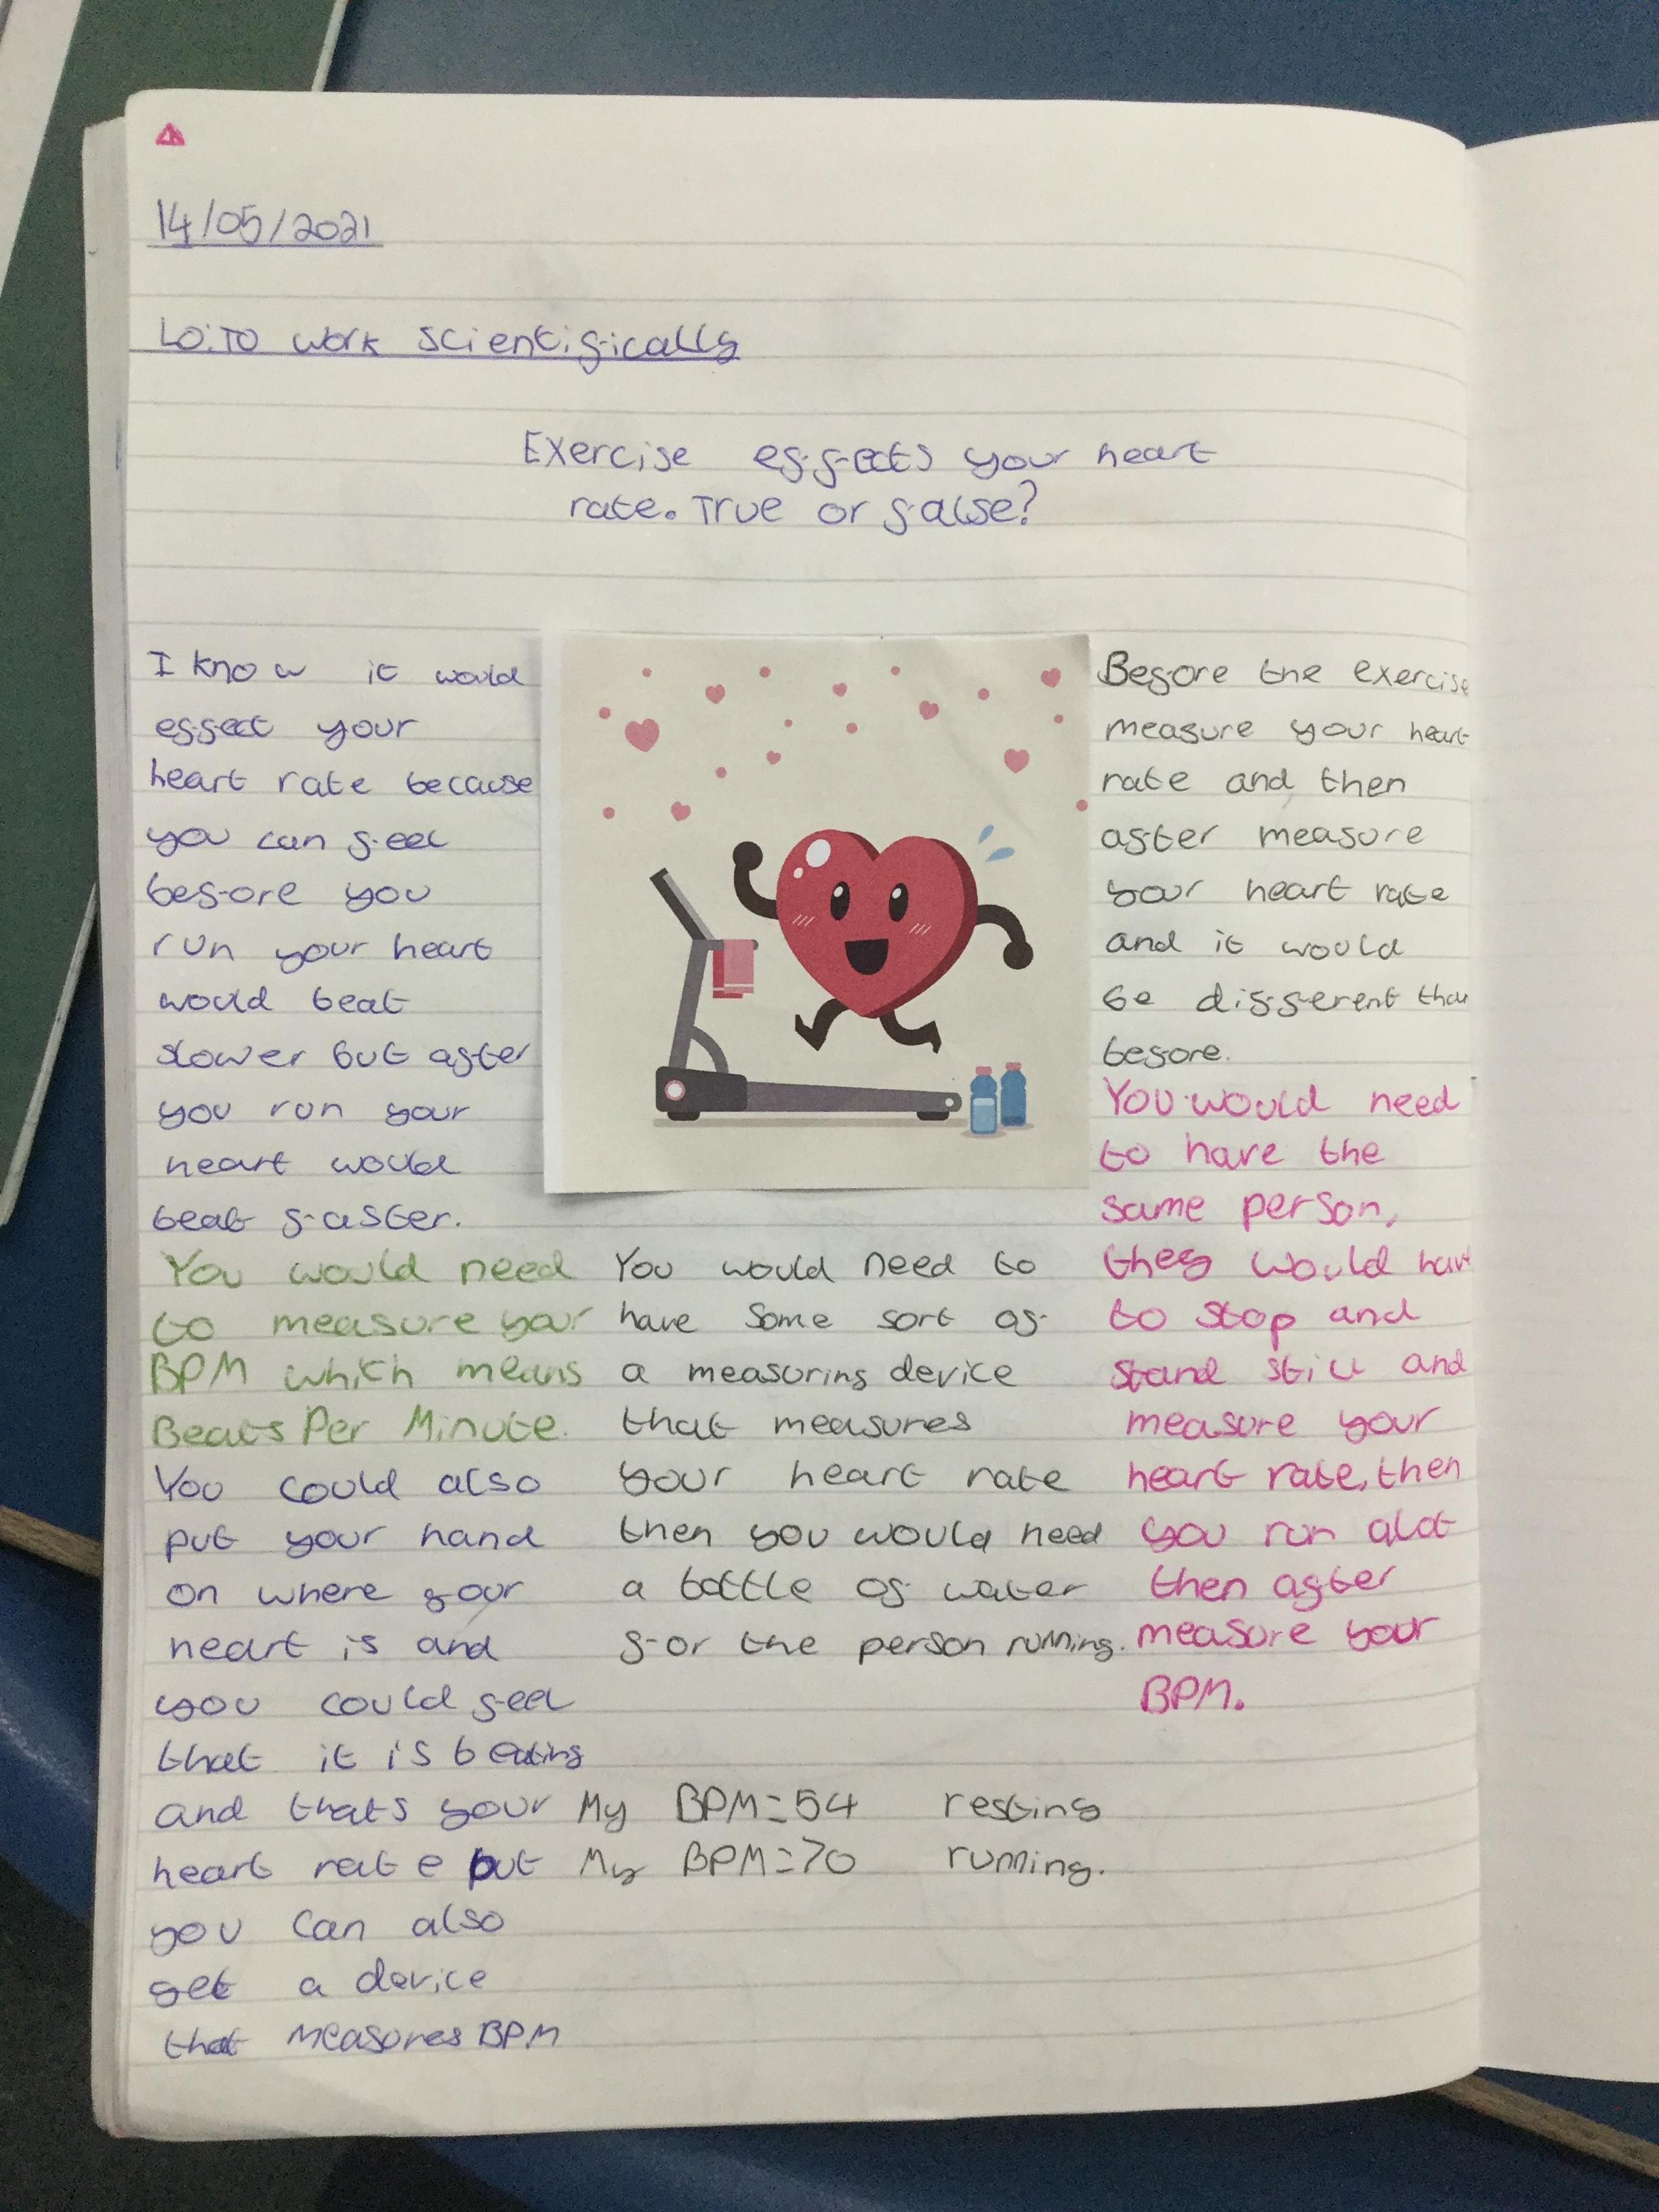 14/05/2021
LO:TO work scientifically
Exercise effects your heart
rate. True or false?
I know it would
effect your
heart rate because
you can feel
before you
run your heart
would beat
slower but after
you run your
heart would
beat faster.
You would need
to measure your
BPM which means
Beats Per Minute.
You could also
put your hand
on where your
heart is and
you could feel
that it is beating
and thats your
heart rate but
you can also
get a device
that measures BPM
You would need to
have some sort of
a measuring device
that measures
your heart rate
then you would need
a bottle of water
for the person running.
My BPM=54 resting
My BPM=70 running.
Before the exercise
measure your heart
rate and then
after measure
your heart rate
and it would
be different than
before.
You would need
to have the
same person,
they would have
to stop and
stand still and
measure your
heart rate, then
you run alot
then after
measure your
BPM.